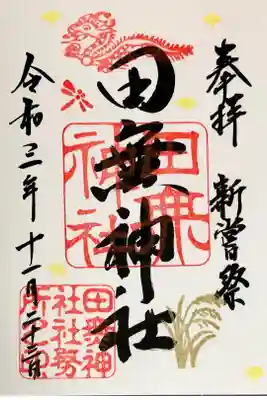 奉拝 新嘗祭
田無神社
令和三年 十一月二十三日
田無
神社
田無神
社社務
所之印